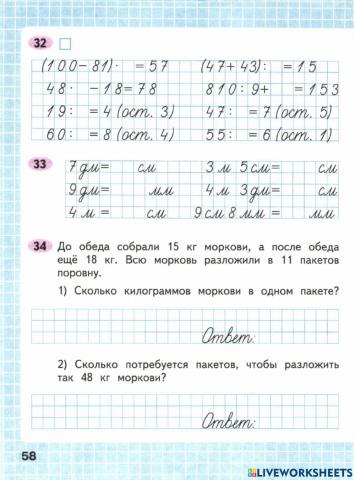 32
(100-81)· =57 (47+43): =15
48· -18=78 810:9+ =153
19: =4 (ост. 3) 47: =7 (ост. 5)
60: =8 (ост. 4) 55: =6 (ост. 1)
33
7 дм= см 3 м 5 см= см
9 дм= мм 4 м 3 дм= см
4 м = см 9 см 8 мм = мм
34 До обеда собрали 15 кг моркови, а после обеда
ещё 18 кг. Всю морковь разложили в 11 пакетов
поровну.
1) Сколько килограммов моркови в одном пакете?
Ответ:
2) Сколько потребуется пакетов, чтобы разложить
так 48 кг моркови?
Ответ:
58
LIVEWORKSHEETS